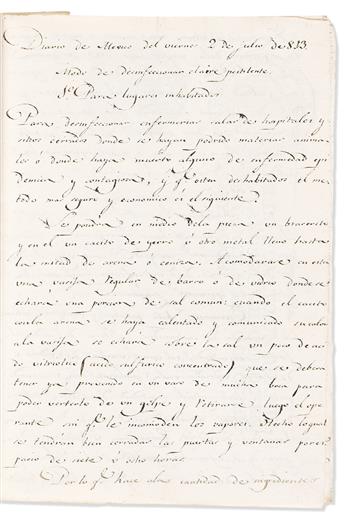 Diario de Mexico del viernes 2 de julio de 813.
Modo de desinfeccionar el aire pestilente.
1º Para lugares inhabitados
Para desinfeccionar enfermerias salas de hospitales y
sitios cerrados donde se hayan podrido materias anima-
les ó donde haya muerto alguno de enfermedad epi-
demica y contagiosa, y qe esten deshabitados el me-
todo mas seguro y economico es el siguiente:
Se pondra en medio dela pieza un bracerito
y en el un cacito de yerro ó otro metal lleno hasta
la mitad de arena ó ceniza. Acomodarase en esta
una vacija regular de barro ó de vidrio donde se
echara una porcion de sal comun: cuando el cacito
conla arena se haya calentado y comunicado su calor
ala vacija se echara sobre la sal un poco de aci-
do vitriolico (acido sulfurico concentrado) que se debera
tener ya prevenido en un vaso de mucha boca para
poder verterlo de un golpe y retirarse luego el ope-
rante sin qe le incomoden los vapores. Hecho lo qual
se tendran bien cerradas las puertas y ventanas por es-
pacio de siete ó ocho horas.
Por lo qe hace ala cantidad de ingredientes